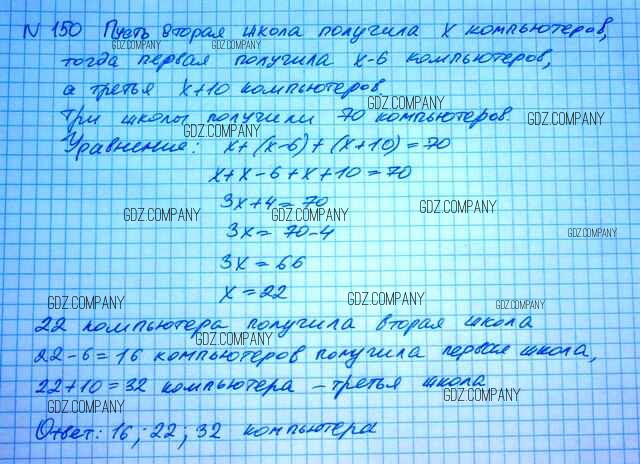 N 150 Пусть вторая школа получила x компьютеров,
GDZ.COMPANY GDZ.COMPANY
тогда первая получила x-6 компьютеров,
а третья x+10 компьютеров.
GDZ.COMPANY
Три школы получили 70 компьютеров.
GDZ.COMPANY GDZ.COMPANY
Уравнение: x+(x-6)+(x+10)=70
x+x-6+x+10=70
3x+4=70
GDZ.COMPANY GDZ.COMPANY GDZ.COMPANY
3x=70-4
GDZ.COMPANY
3x=66
x=22
GDZ.COMPANY GDZ.COMPANY GDZ.COMPANY
22 компьютера получила вторая школа
GDZ.COMPANY
22-6=16 компьютеров получила первая школа,
22+10=32 компьютера - третья школа
GDZ.COMPANY GDZ.COMPANY
Ответ: 16; 22; 32 компьютера